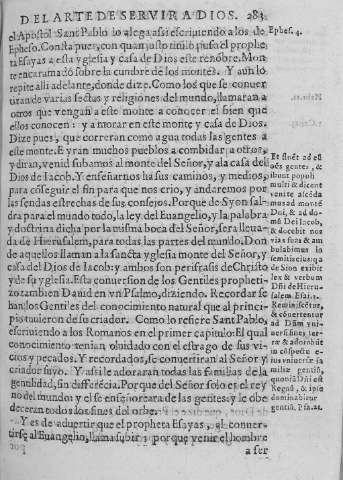 DEL ARTE DE SERVIR A DIOS. 283.
el Apostol Sant Pablo lo alega, assi escriuiendo a los de
Epheso. Consta pues, con quan justo titulo puso el prophe
ta Esayas a esta yglesia y casa de Dios este renõbre. Mon
te encaramado sobre la cumbre de los montes. Y aun lo
repite alli adelante, donde dize. Como los que se conuer
tiran de varias sectas y religiones del mundo, llamaran a
otros que vengan a este monte a conocer el bien que
ellos conocen: y a morar en este monte y casa de Dios.
Dize pues, que correran como agua todas las gentes a
este monte. E yran muchos pueblos a combidar a otros,
y diran, venid subamos al monte del Señor, y ala casa del
Dios de Iacob. Y enseñarnos ha sus caminos, y medios,
para cõseguir el fin para que nos crio, y andaremos por
las sendas estrechas de sus consejos. Porque de Syon sal-
dra para el mundo todo, la ley del Euangelio, y la palabra
y doctrina dicha por la misma boca del Señor, sera lleua-
da de Hierusalem, para todas las partes del mundo. Don
de aquellos llaman a la sancta yglesia monte del Señor, y
casa del Dios de Iacob: y ambos son perifrasis de Christo
y de su yglesia. Esta conuersion de los Gentiles propheti-
zo tambien Dauid en vn Psalmo, diziendo. Recordar se
han los Gentiles del conocimiento natural que al prin-
cipio tuuieron de su criador. Como lo refiere Sant Pablo,
escriuiendo a los Romanos en el primer capitulo: El qual
conocimiento tenian oluidado con el estrago de sus vi-
cios y pecados. Y recordados, se conuertiran al Señor y
criador suyo. Y assi le adoraran todas las familias de la
gentilidad, sin differẽcia. Porque del Señor solo es el rey
no del mundo: y el se enseñoreara de las gentes: y le obe
deceran todos los fines del orbe.
Y es de aduertir que el propheta Esayas, al conuer-
tirse al Euangelio, llama subir: porque venir el hombre
a ser
Ephes. 4.
Et fluẽt ad eũ
oẽs gentes, &
ibunt populi
multi & dicent
venite ascẽda
mus ad montẽ
Dñi, & ad do-
mũ Dei Iacob,
& docebit nos
vias suas & am
bulabimus in
semitis eius: qa
de Sion exibit
lex & verbum
Dñi de Hieru-
salem. Esai. 2.
Reminiscẽtur,
& cõuertentur
ad Dñm vni-
uersi fines ter-
ræ & adorabũt
in cõspectu e-
ius vniuersæ fa
miliæ gentiũ,
quoniã Dñi est
Regnũ, & ipse
dominabitur
gentiũ, Psa. 21.